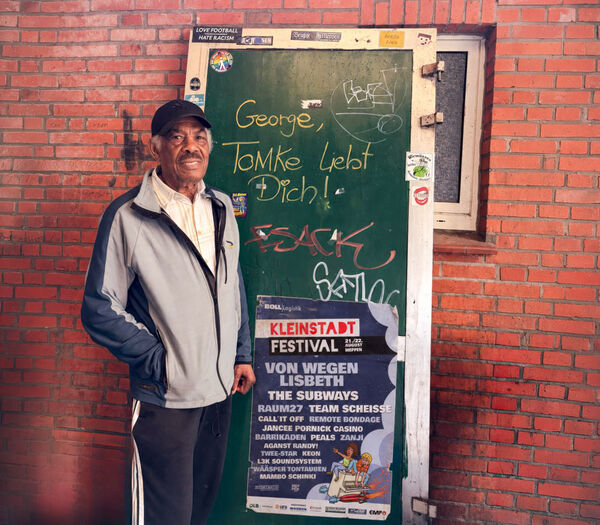 LOVE FOOTBALL
HATE RACISM
George,
Tomke liebt
Dich!
ESACK
BOLLLogistik
KLEINSTADT
FESTIVAL
21./22.
AUGUST
MEPPEN
VON WEGEN
LISBETH
THE SUBWAYS
RAUM27 TEAM SCHEISSE
CALL IT OFF REMOTE BONDAGE
JANCEE PORNICK CASINO
BARRIKADEN PEALS ZANJI
AGANST RANDY!
TWEE-STAR KEON
L3K SOUNDSYSTEM
WÄÄSPER TONTAUBEN
MAMBO SCHINKI
EMP